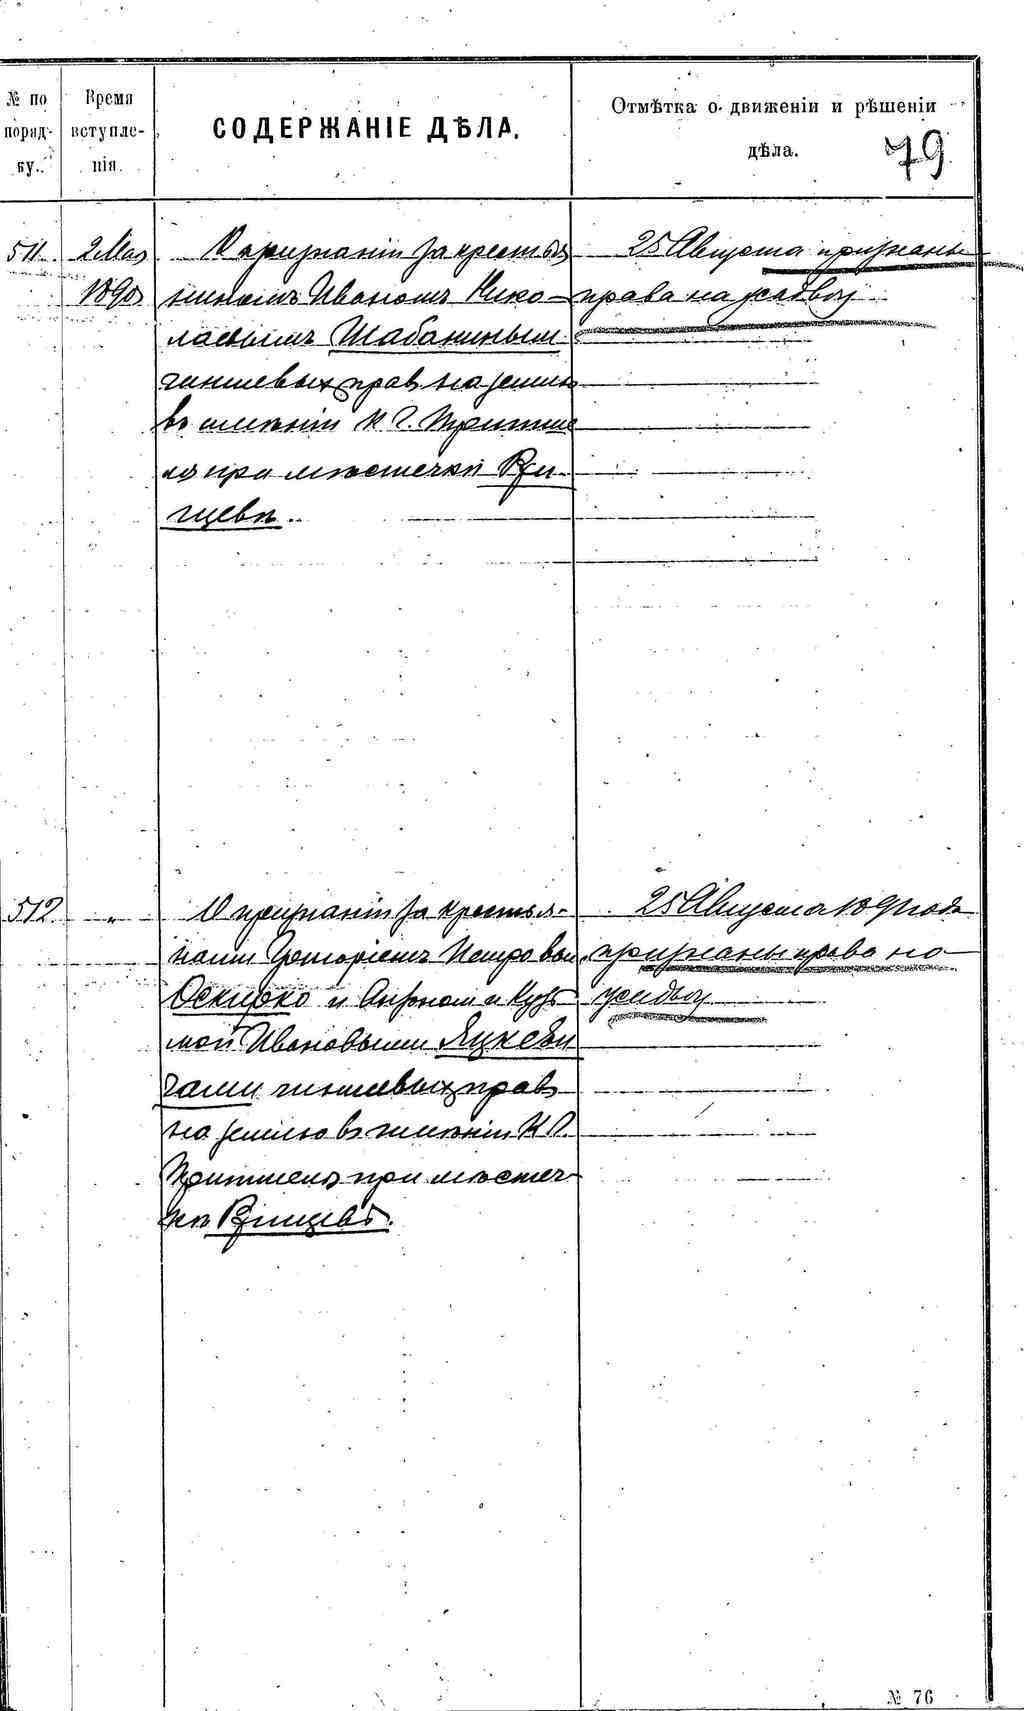 № по порядку.
Время вступленія.
СОДЕРЖАНІЕ ДѢЛА.
Отмѣтка о движеніи и рѣшеніи
дѣла.
79
511. 2 Мая О признаніи за крестья
1890 ниномъ Иваномъ Нико-
лаевымъ Шабанинымъ
чиншевыхъ правъ на землю
въ имѣніи
при мѣстечкѣ Рзи-
щевѣ.
25 Августа признаны
права на усадьбу
512. " О признаніи за крестья-
нами Григоріемъ Петровым
Оскирко и Антономъ и Кузь
мой Ивановыми Яцкеви
чами чиншевыхъ правъ
на землю въ имѣніи
при мѣстеч-
кѣ Рзищевѣ.
25 Августа 1891 года
признаны права на
усадьбу
№ 76